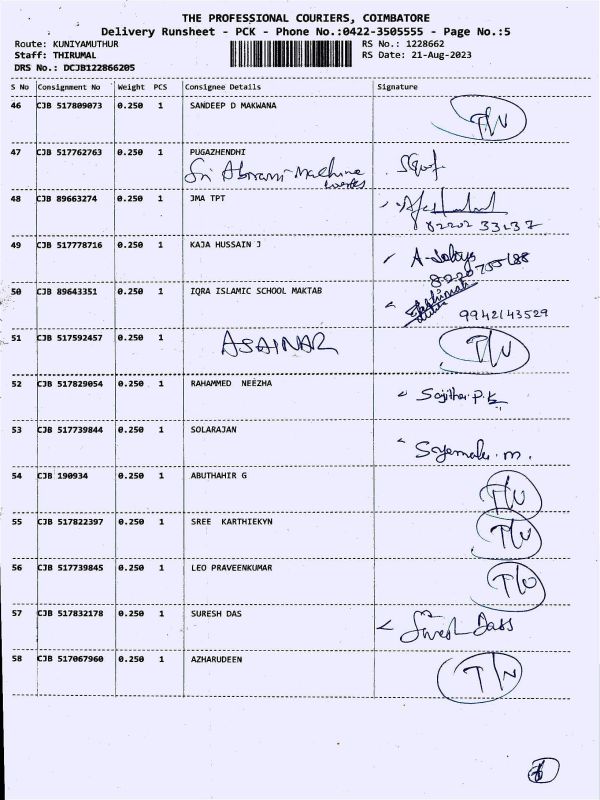 THE PROFESSIONAL COURIERS, COIMBATORE
Delivery Runsheet - PCK - Phone No.:0422-3505555 - Page No.:5
Route: KUNIYAMUTHUR RS No.: 1228662
Staff: THIRUMAL RS Date: 21-Aug-2023
DRS No.: DCJB122866205
S No Consignment No Weight PCS Consignee Details Signature
46 CJB 517809073 0.250 1 SANDEEP D MAKWANA
47 CJB 517762763 0.250 1 PUGAZHENDHI
Sri Abirami Machine
works
48 CJB 89663274 0.250 1 JMA TPT
82202 33237
49 CJB 517778716 0.250 1 KAJA HUSSAIN J
50 CJB 89643351 0.250 1 IQRA ISLAMIC SCHOOL MAKTAB
9942143529
51 CJB 517592457 0.250 1 ASAINAR
52 CJB 517829054 0.250 1 RAHAMMED NEEZHA
Sajitha P.K
53 CJB 517739844 0.250 1 SOLARAJAN
54 CJB 190934 0.250 1 ABUTHAHIR G
55 CJB 517822397 0.250 1 SREE KARTHIEKYN
56 CJB 517739845 0.250 1 LEO PRAVEENKUMAR
57 CJB 517832178 0.250 1 SURESH DAS
Suresh Dass
58 CJB 517067960 0.250 1 AZHARUDEEN